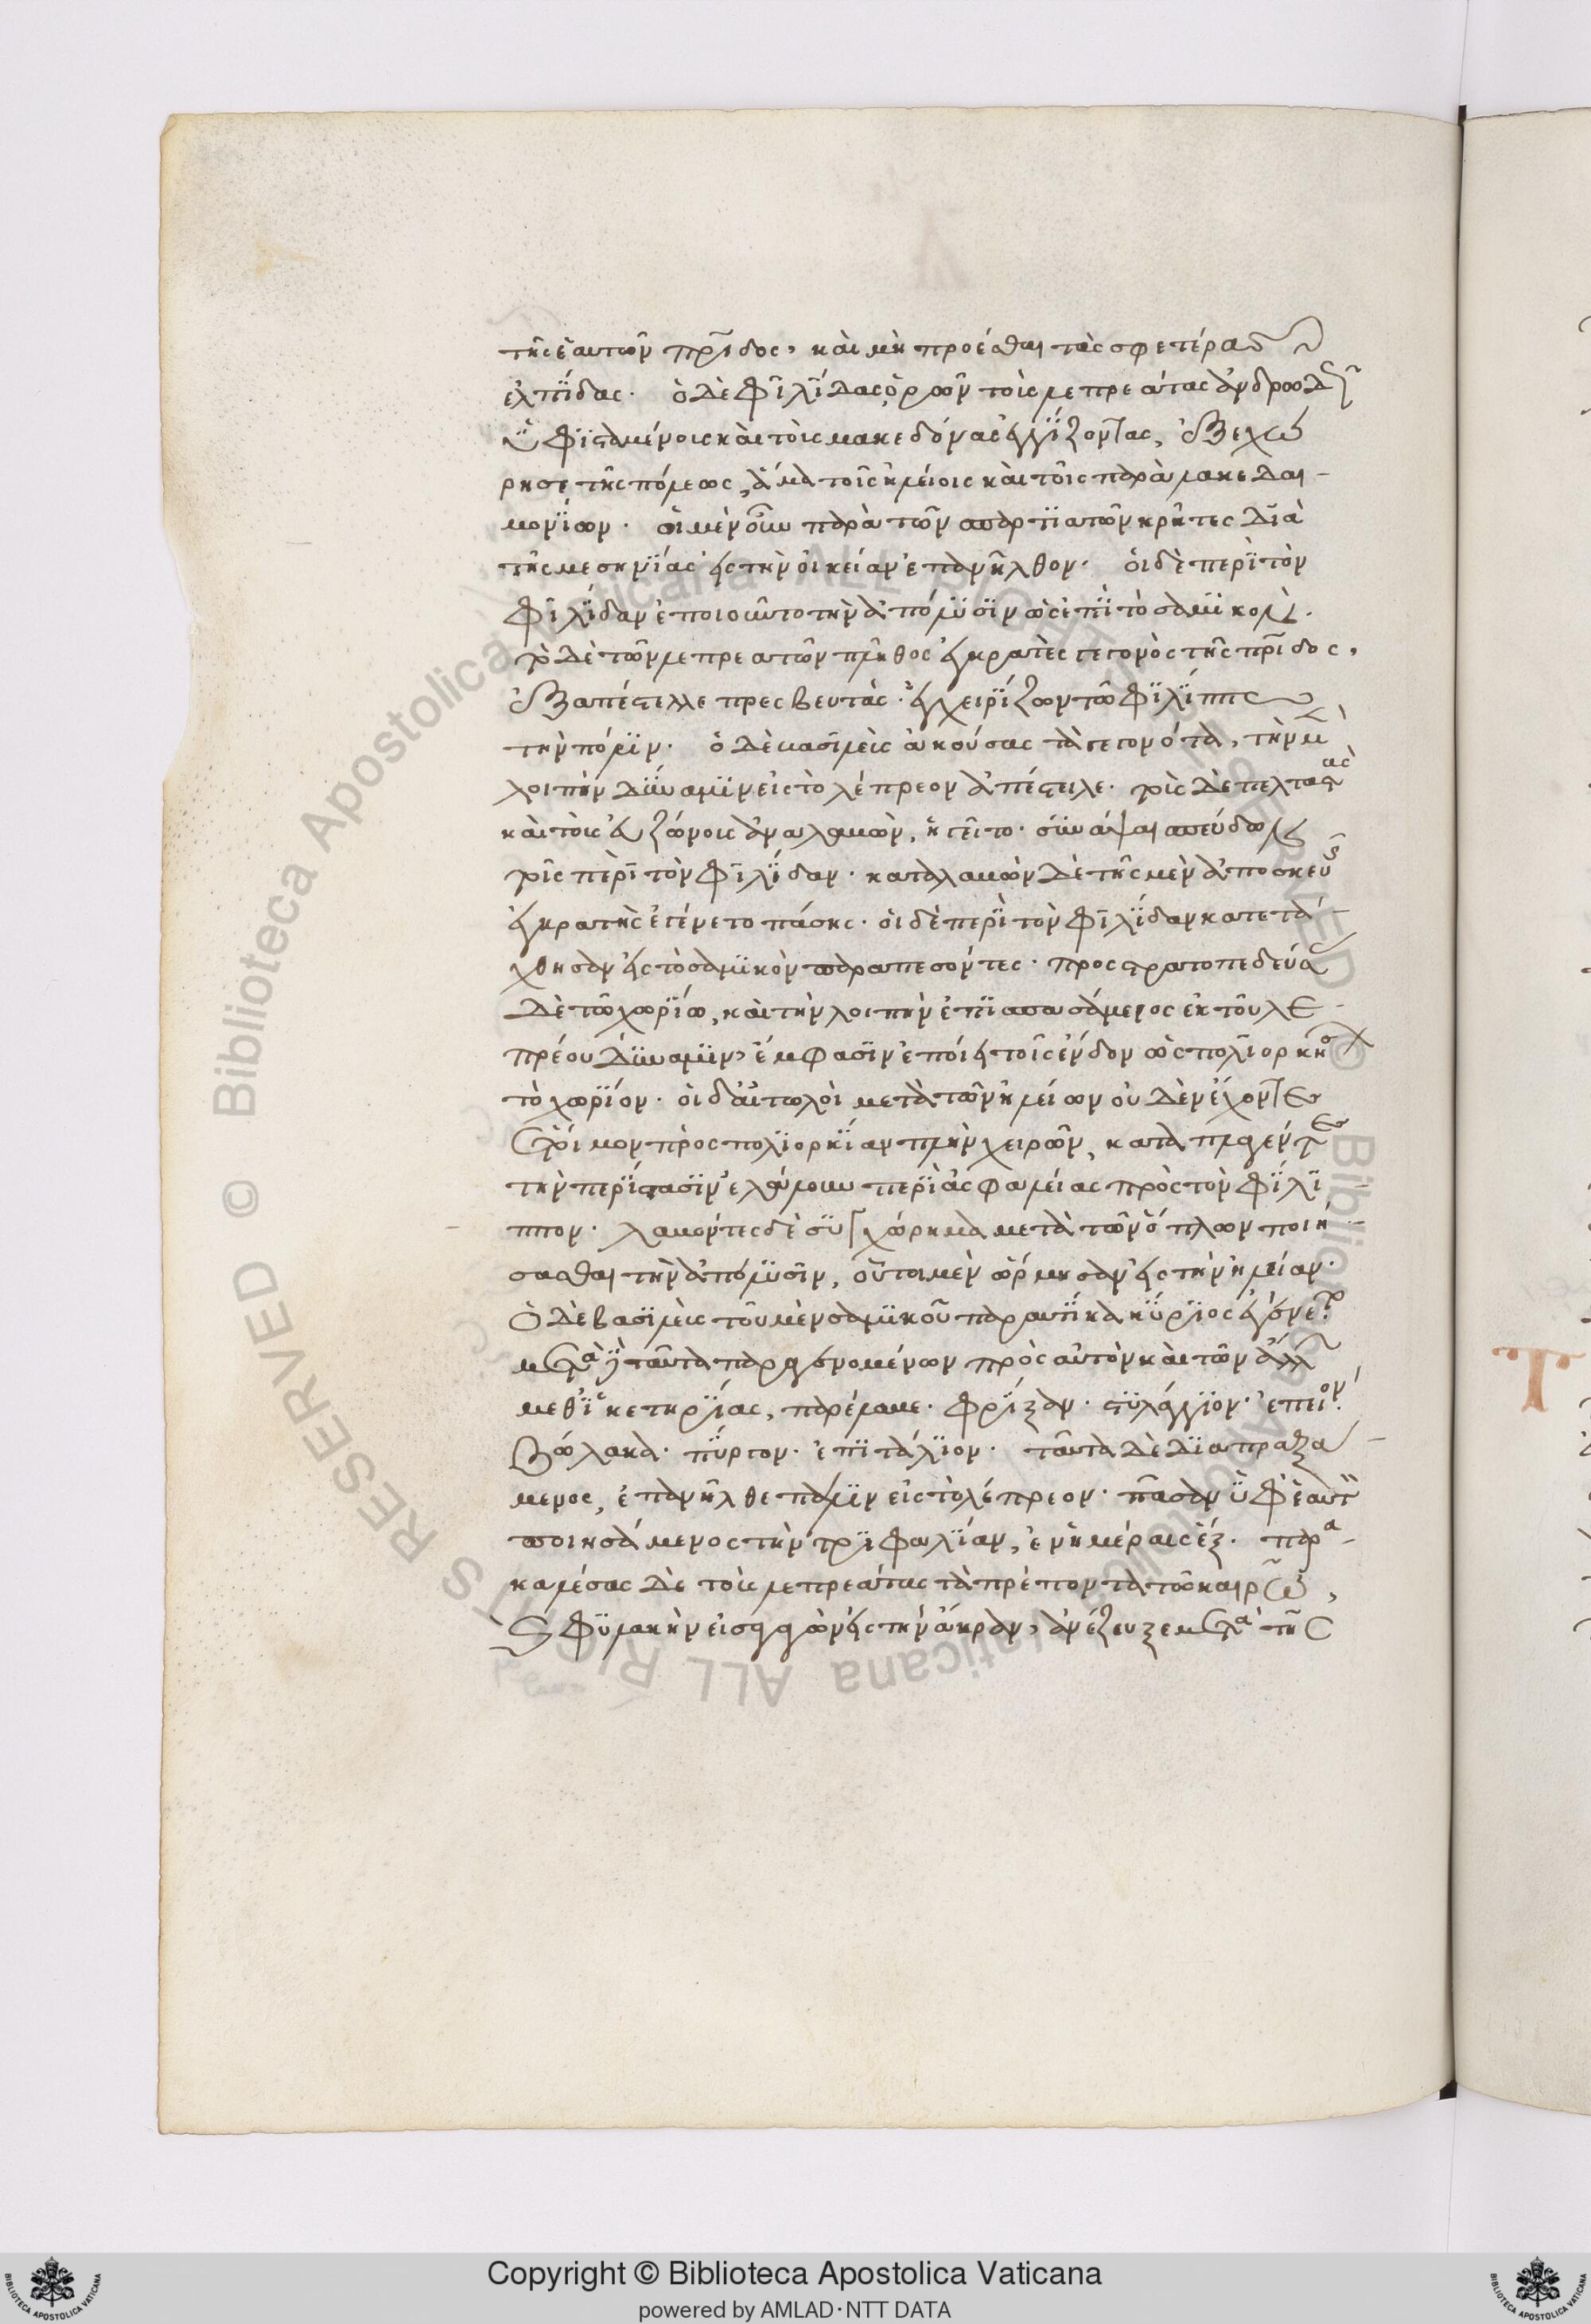 τῆς ἑαυτῶν πρ̅ιδος, καὶ μὴ προέσθαι τὰς σφετέρας
ἐλπίδας. ὁ δὲ Φιλίδας ὁρῶν τοὺς λεπρεάτας ἀνδρωδῶς
ὑφισταμένους καὶ τοὺς μακεδόνας ἐγγίζοντας, ἐξεχώ
ρησε τῆς πόλεως, ἅμα τοῖς ἠλείοις καὶ τοῖς παρὰ λακεδαι-
μονίων. οἱ μὲν οὖν παρὰ τῶν σπαρτιατῶν κρῆτες διὰ
τῆς μεσηνίας εἰς τὴν οἰκείαν ἐπανῆλθον. οἱ δὲ περὶ τὸν
Φιλίδαν ἐποιοῦντο τὴν ἀπόλυσιν ὡς ἐπὶ τὸ σαμικόν.
τὸ δὲ τῶν λεπρεατῶν πλῆθος ἐγκρατὲς γεγονὸς τῆς πρ̅ιδος,
ἐξαπέστελλε πρεσβευτὰς ἐγχειρίζων τῷ Φιλίππῳ
τὴν πόλιν. ὁ δὲ βασιλεὺς ἀκούσας τὰ γεγονότα, τὴν μὲν
λοιπὴν δύναμιν εἰς τὸ λέπρεον ἀπέστειλε. τοὺς δὲ πελταστὰς
καὶ τοὺς εὐζώνους ἀναλαβὼν, ἡγεῖτο. συνάψαι σπεύδων
τοῖς περὶ τὸν Φιλίδαν. καταλαβὼν δὲ τῆς μὲν ἀποσκευῆς
ἐγκρατὴς ἐγένετο πάσης. οἱ δὲ περὶ τὸν Φιλίδαν κατετά-
χθησαν εἰς τὸ σαμικὸν παραπεσόντες. προσστρατοπεδεύσας
δὲ τῷ χωρίῳ, καὶ τὴν λοιπὴν ἐπισπασάμενος ἐκ τοῦ λε-
πρέου δύναμιν, ἔμφασιν ἐποίει τοῖς ἔνδον ὡς πολιορκήσων
τὸ χωρίον. οἱ δ᾽ αἰτωλοὶ μετὰ τῶν ἠλείων οὐδὲν ἔχοντες
ἕτοιμον πρὸς πολιορκίαν πλὴν χειρῶν, καταπλαγέντες
τὴν περίστασιν ἐλάλουν περὶ ἀσφαλείας πρὸς τὸν Φίλι-
ππον. λαβόντες δὲ συγχώρημα μετὰ τῶν ὅπλων ποιή-
σασθαι τὴν ἀπόλυσιν, οὗτοι μὲν ὥρμησαν εἰς τὴν ἠλείαν.
Ὁ δὲ βασιλεὺς τοῦ μὲν σαμικοῦ παραυτίκα κύριος ἐγένετο
μετὰ δὲ ταῦτα παραγενομένων πρὸς αὐτὸν καὶ τῶν ἄλλων
μεθ᾽ ἱκετηρίας, παρέλαβε. φρίξαν. στυλάγγιον. ἔπιον.
βώλακα. πύργον. ἐπιτάλιον. ταῦτα δὲ διαπραξά-
μενος, ἐπανῆλθε πάλιν εἰς τὸ λέπρεον. πᾶσαν ὑφ᾽ ἑαυτὸν
ποιησάμενος τὴν τριφυλίαν, ἐν ἡμέραις ἕξ. παρα-
καλέσας δὲ τοὺς λεπρεάτας τὰ πρέποντα τῷ καιρῷ,
καὶ φυλακὴν εἰσαγαγὼν εἰς τὴν ἄκραν, ἀνέζευξε μετὰ τῆς